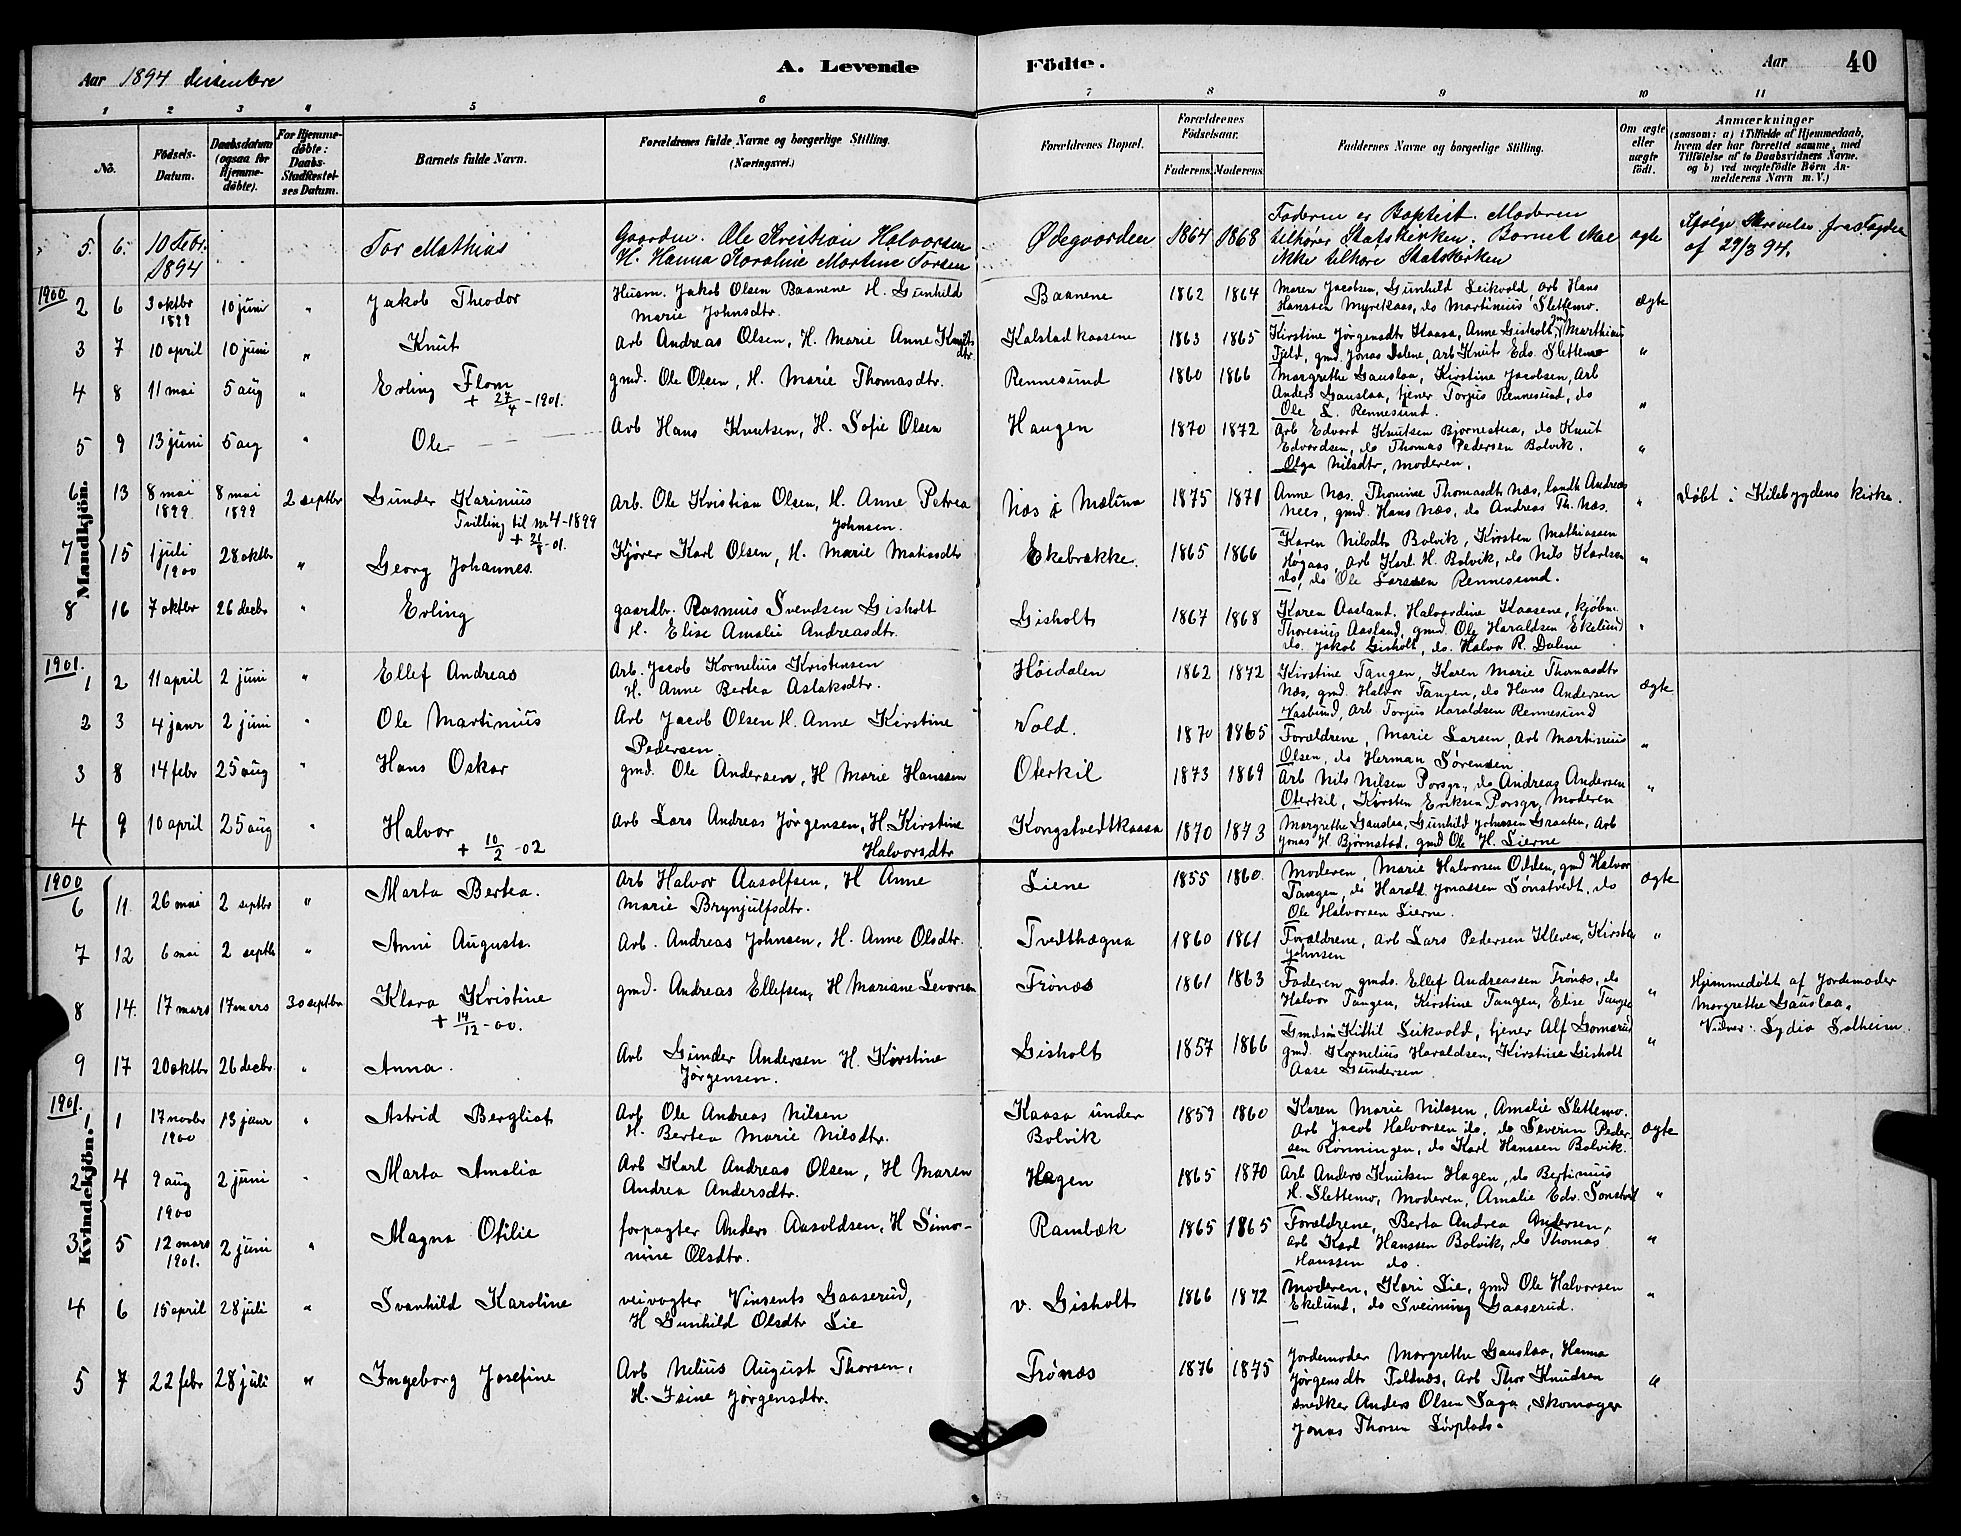 Aar 1894 dissentere
A. Levende Födte.
Aar 40
1 2 3 4 5 6 7 8 9 10 11
No.
Födsels-Datum.
Daabsdatum (ogsaa for Hjemme-döbte).
For Hjemme-döbte: Daabs-Stadfæstel-ses Datum.
Barnets fulde Navn.
Forældrenes fulde Navne og borgerlige Stilling. (Næringsvei.)
Forældrenes Bopæl.
Forældrenes Födselsaar.
Faderens. Moderens.
Faddernes Navne og borgerlige Stilling.
Om ægte eller uægte födt.
Anmærkninger
(saasom: a) i Tilfælde af Hjemmedaab, hvem der har forrettet samme, med Tilföielse af to Daabsvidners Navne. og b) ved uægtefödte Börn An-melderens Navn m. V.)
Mandkjön.
5. 6. 10 Febr. 1894 Tor Mathias Gaarden. Ole Kristian Halvorsen H. Hanna Karoline Martine Torsen Ødegaarden 1864 1868 Faderen er Baptist. Moderen tilhører Statskirken. Barnet skal ikke tilhøre Statskirken ægte Ifølge Skrivelse fra Fogden af 29/3 94.
1900
2 6 3 oktbr 1899 10 juni " Jakob Theodor Husm. Jakob Olsen Baanene H. Gunhild Marie Johnsdtr. Baanene 1862 1864 Maren Jacobsen, Gunhild Leikvold arb Hans Hanssen Myrekaas, do Martinius Slettemo. ægte
3 7 10 april 10 juni " Knut Arb Andreas Olsen, H. Marie Anne Knuts dtr. Kalstadkaasene 1863 1865 Kirstine Jørgensdtr Kaasa, Anne Gisholt, gmd Marthius Fjeld, gmd. Jonas Dalene, arb Knut Edv. Slettemo "
4 8 11 mai 5 aug " Erling Flom + 27/4 - 1901. gmd. Ole Olsen, H. Marie Thomasdtr. Rennesund 1860 1866 Margrethe Gauslaa, Kirstine Jacobsen, Arb Anders Gauslaa, tjener Torjus Rennesund, do Ole L. Rennesund. "
5 9 13 juni 5 aug " Ole Arb Hans Knutsen, H. Sofie Olsen Haugen 1870 1872 Arb Edvard Knutsen Bjørnestua, do Knut Edvardsen, do Thomas Pedersen Bolvik. Olga Nilsdtr, moderen. "
6 13 8 mai 1899. 8 mai 1899 2 septbr Gunder Karinius Tvilling til nr 4 - 1899 + 21/8 - 01. Arb. Ole Kristian Olsen, H. Anne Petrea Johnsen. Næs i Mælum 1875 1871 Anne Næs. Thomine Thomasdtr Næs, landh Andreas Næs, gmd. Hans Næs, do Andreas Th. Næs. " Døbt i Kilebygdens kirke.
7 15 1 juli 1900 28 oktbr " Georg Johannes. Kjører Karl Olsen, H. Marie Matisdtr Ekebrække. 1865 1866 Karen Nilsdtr Bolvik, Kirsten Mathiassen Høgaas, arb Karl H. Bolvik, do Nils Karlsen do, do Ole Larssen Rennesund. "
8 16 7 oktbr 26 decbr " Erling gaardbr. Rasmus Svendsen Gisholt H. Elise Amalie Andreasdtr. Gisholt 1867 1868 Karen Aasland, Halvordine Kaasene, kjøbm. Thoresius Aasland, gmd. Ole Haraldsen Ekelund do. Jakob Gisholt, do. Halvor R. Dalene "
1901.
1 2 11 april 2 juni " Ellef Andreas Arb. Jacob Kornelius Kristensen H. Anne Bertea Aslaksdtr. Høidalen 1862 1872 Kirstine Tangen, Karen Marie Thomasdtr Næs, gmd. Halvor Tangen, do Hans Andersen Vasbund, arb Torjus Haraldsen Rennesund ægte
2 3 4 janr 2 juni " Ole Martinius Arb Jacob Olsen H. Anne Kirstine Pedersen. Vold. 1870 1865 Forældrene, Marie Larsen, arb Martinius Olsen, do Herman Sørensen "
3 8 14 febr 25 aug " Hans Oskar gmd. Ole Andersen, H Marie Hanssen Oterkil 1873 1869 Arb Nils Nilsen Porsgr., do Andreas Andersen Oterkil, Kirsten Eriksen Porsgr, Moderen "
4 9 10 april 25 aug " Halvor + 10/2 - 02 Arb Lars Andreas Jørgensen, H. Kirstine Halvorsdtr Kongstvedtkaasa 1870 1873 Margrethe Gauslaa, Gunhild Johnsen Graaten, Arb Jonas H. Bjørnstad, gmd Ole H. Lierne
Kvindekjön.
1900
6 11. 26 mai 2 septbr " Marta Bertea. Arb Halvor Aasolfsen, H Anne Marie Brynjulfsdtr. Liene 1855 1860. Moderen, Marie Halvorsen Odden, gmd Halvor Tangen, do Harald Jonassen Sønstvedt, do Ole Halvorsen Lierne. ægte
7 12 6 mai 2 septb " Anni Augusta. Arb. Andreas Johnsen, H. Anne Olsdtr. Tvedthægna 1860 1861 Forældrene, arb Lars Pedersen Kleven, Kirsten Johnsen "
8 14. 17 mars 17 mars 30 septbr Klara Kristine + 14/12 - 00. gmd. Andreas Ellefsen, H Mariane Levorsen Frönæs 1861 1863 Faderen gmds. Ellef Andreassen Frönæs, do Halvor Tangen, Kirstine Tangen, Elise Tangen " Hjemmedøbt af Jordemoder Margrethe Gauslaa. Vidner: Lydia Solheim.
9 17 20 oktbr 26 decbr. " Anna. Arb Gunder Andersen H. Kirstine Jørgensen. Gisholt 1857 1866 Gmdsøn Kittil Leikvold, tjener Alf Gomsrud gmd. Kornelius Haraldsen, Kirstine Gisholt Aase Gundersen "
1901.
1 1 17 novbr 1900 13 janr " Astrid Bergliot Arb Ole Andreas Nilsen H. Bertea Marie Nilsdtr. Kaasa under Bolvik 1859 1860 Karen Marie Nilssen, Amalie Slettemo. Arb Jacob Halvorsen do, do Severin Peder-sen Rønningen, do Karl Hanssen Bolvik. ægte
2 4 9 aug 1900 2 juni " Marta Amalia Arb Karl Andreas Olsen, H Maren Andrea Andersdtr. Hagen 1865 1870 Arb Anders Knutsen Hagen, do Bertinius H. Slettemo, Moderen, Amalie Edv. Sønstvet "
3 5 12 mars 1901. 2 juni " Magna Otilie forpagter Anders Aasoldsen, H Simo-nine Olsdtr. Rambæk 1865 1865 Forældrene, Berta Andrea Andersen, arb Karl Hanssen Bolvik, do Thomas Hanssen do. "
4 6 15 april 28 juli " Svanhild Karoline veivogter Vinsents Gaaserud, H Gunhild Olsdtr Lie v. Gisholt 1866 1872 Moderen, Kari Lie, gmd Ole Halvorsen Ekelund, do Sveinung Gaaserud. "
5 7 22 febr 28 juli " Ingeborg Josefine Arb Nelius August Thorsen, H. Isine Jørgensdtr. Frönæs 1876 1875 Jordemoder Margrethe Gauslaa, Hanna Jørgensdtr Foldnæs, Arb Thor Knudsen snedker Anders Olsen Saga, Skomager Jonas Thorsen Løvplads. "